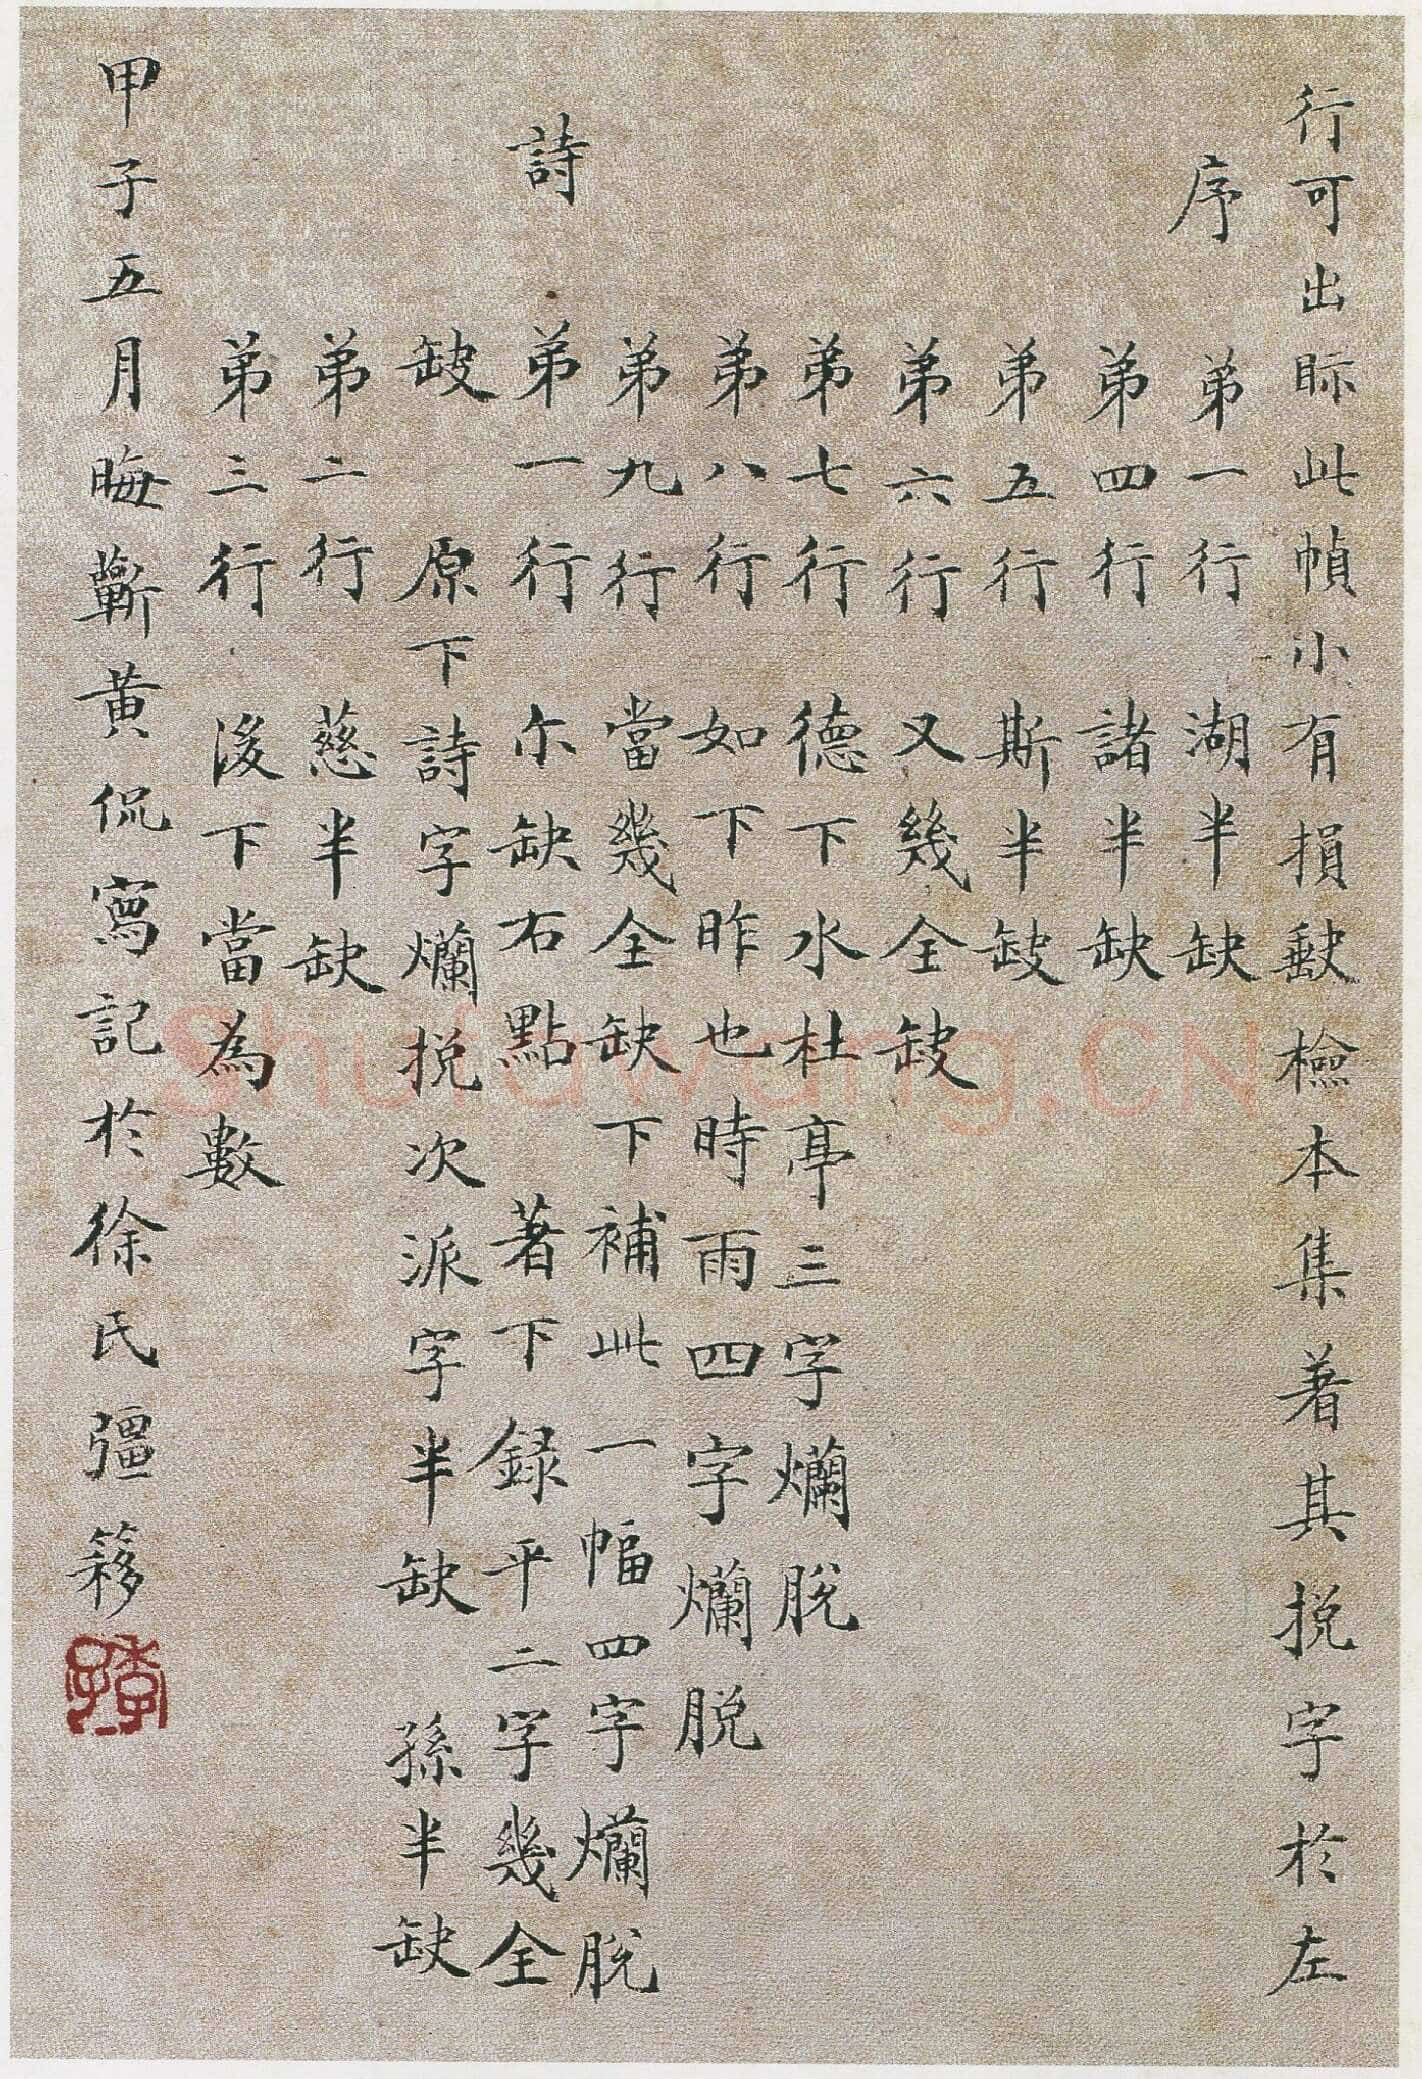 行可出眎此幀小有損缺檢本集著其挩字於左
序
弟一行 湖半缺
弟四行 諸半缺
弟五行 斯半缺
弟六行 又幾全缺
弟七行 德下水杜亭三字爛脫
弟八行 如下昨也時雨四字爛脫
弟九行 當幾全缺下補此一幅四字爛脫
詩
弟一行 尒缺右點 著下錄平二字幾全
缺 原下詩字爛挩次派字半缺 孫半缺
弟二行 慈半缺
弟三行 後下當為數
甲子五月晦蘄黃侃寫記於徐氏彊簃
Shufawang.CN